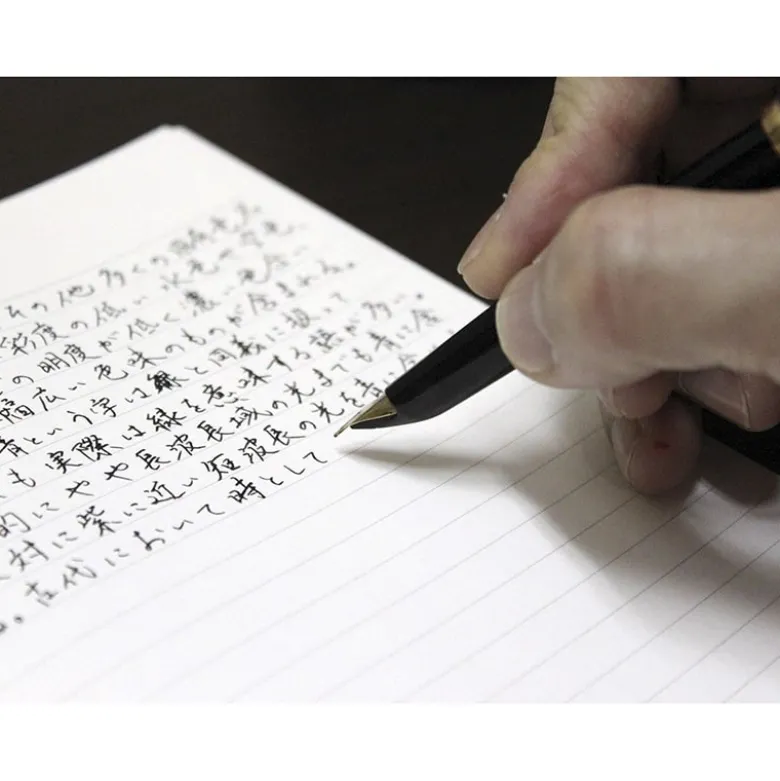 その他多くの同系色
彩度の低い水色や空色、
の明度が低く濃い色合い
幅広い色味のものが含まれる。
青という字は緑と同義に扱
も実際は緑を意味する語が多い。
的にやや長波長域の光までも青に含
対に紫に近い短波長の光を
。古代において時として